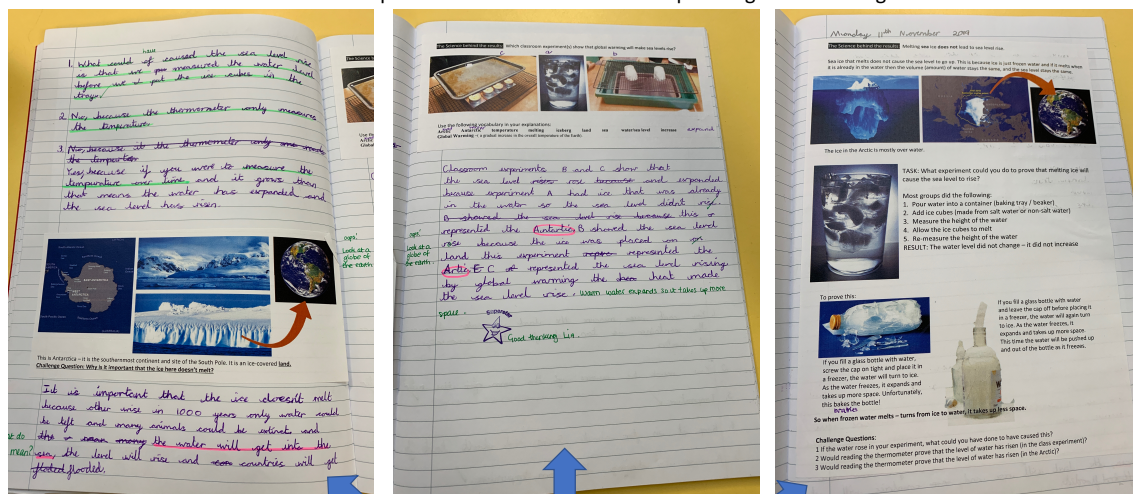 here
1. What could of caused the sea level rise
is that we measured the water level
before we put the ice cubes in the
tray.
2. No, because the thermometer only measures
the temperature.
3. No, because the thermometer only
the
Yes, because if you were to measure the
temperature over time and it grows than
that means the water has expanded and
the sea level has risen.
This is Antarctica – it is the southernmost continent and site of the South Pole. It is an ice-covered land.
Challenge Question: Why is it important that the ice here doesn't melt?
It is important that the ice doesn't melt
because other wise in 1000 years only water could
be left and many animals could be extinct and
the water will get into the
sea, the level will rise and countries will get
flooded.
do
mean?
The Science behind the results: Which classroom experiment(s) show that global warming will make sea levels rise?
c a b
Use the following vocabulary in your explanations:
Arctic Antarctic temperature melting iceberg land sea water/sea level increase expand
Global Warming – a gradual increase in the overall temperature of the Earth.
Classroom experiments B and C show that
the sea level rises rose because and expanded
because experiment A had ice that was already
in the water so the sea level didnt rise.
B showed the sea level rise because this
represented the Antartic, B showed the sea level
rose because the ice was placed on
land this experiment represented the
Artic. C represented the sea level rising
by global warming the heat made
the sea level rise. Warm water expands so it takes up more
space.
oops!
Look at a
globe of
the earth.
superstar
Good thinking Lia.
Monday 11th November 2019
The Science behind the results: Melting sea ice does not lead to sea level rise.
Sea ice that melts does not cause the sea level to go up. This is because ice is just frozen water and if it melts when
it is already in the water then the volume (amount) of water stays the same, and the sea level stays the same.
The ice in the Arctic is mostly over water.
TASK: What experiment could you do to prove that melting ice will
cause the sea level to rise?
Most groups did the following:
1. Pour water into a container (baking tray / beaker)
2. Add ice cubes (made from salt water or non-salt water)
3. Measure the height of the water
4. Allow the ice cubes to melt
5. Re-measure the height of the water
RESULT: The water level did not change – it did not increase
To prove this:
If you fill a glass bottle with water,
screw the cap on tight and place it in
a freezer, the water will turn to ice.
As the water freezes, it expands and
takes up more space. Unfortunately,
this bakes the bottle!
breakes
If you fill a glass bottle with water
and leave the cap off before placing it
in a freezer, the water will again turn
to ice. As the water freezes, it
expands and takes up more space.
This time the water will be pushed up
and out of the bottle as it freezes.
So when frozen water melts – turns from ice to water, it takes up less space.
Challenge Questions:
1 If the water rose in your experiment, what could you have done to have caused this?
2 Would reading the thermometer prove that the level of water has risen (in the class experiment)?
3 Would reading the thermometer prove that the level of water has risen (in the Arctic)?